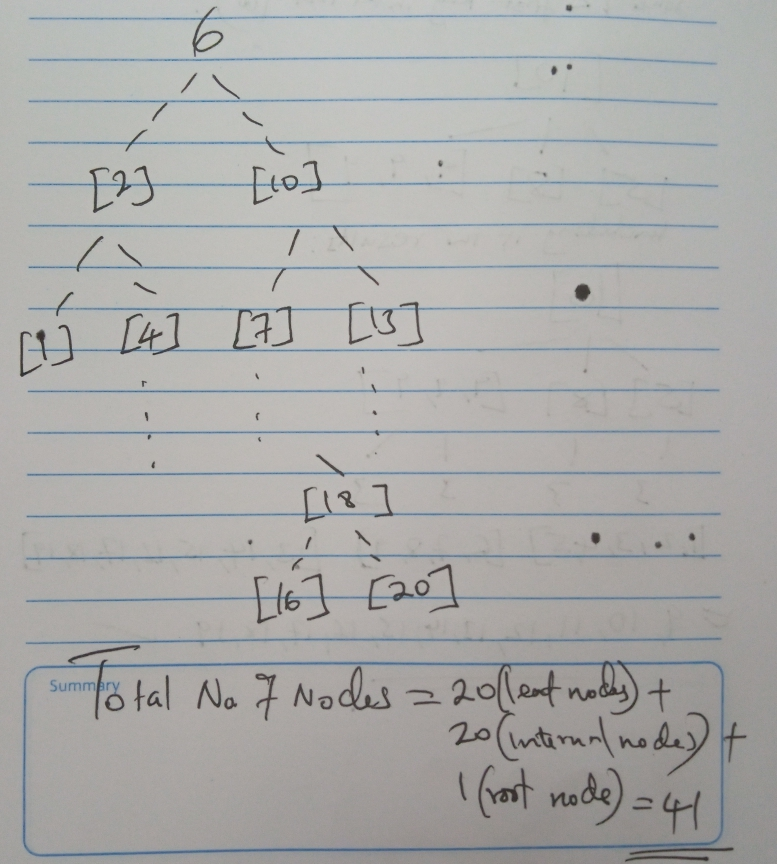 6
[2] [10]
[1] [4] [7] [13]
[18]
[16] [20]
Summary
Total No of Nodes = 20 (leaf nodes) +
20 (internal nodes) +
1 (root node) = 41